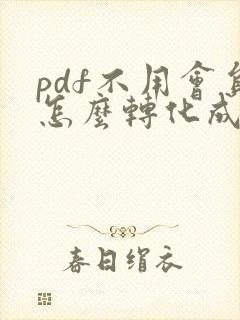 pdf不用會員
怎麼轉化成
春日绢衣